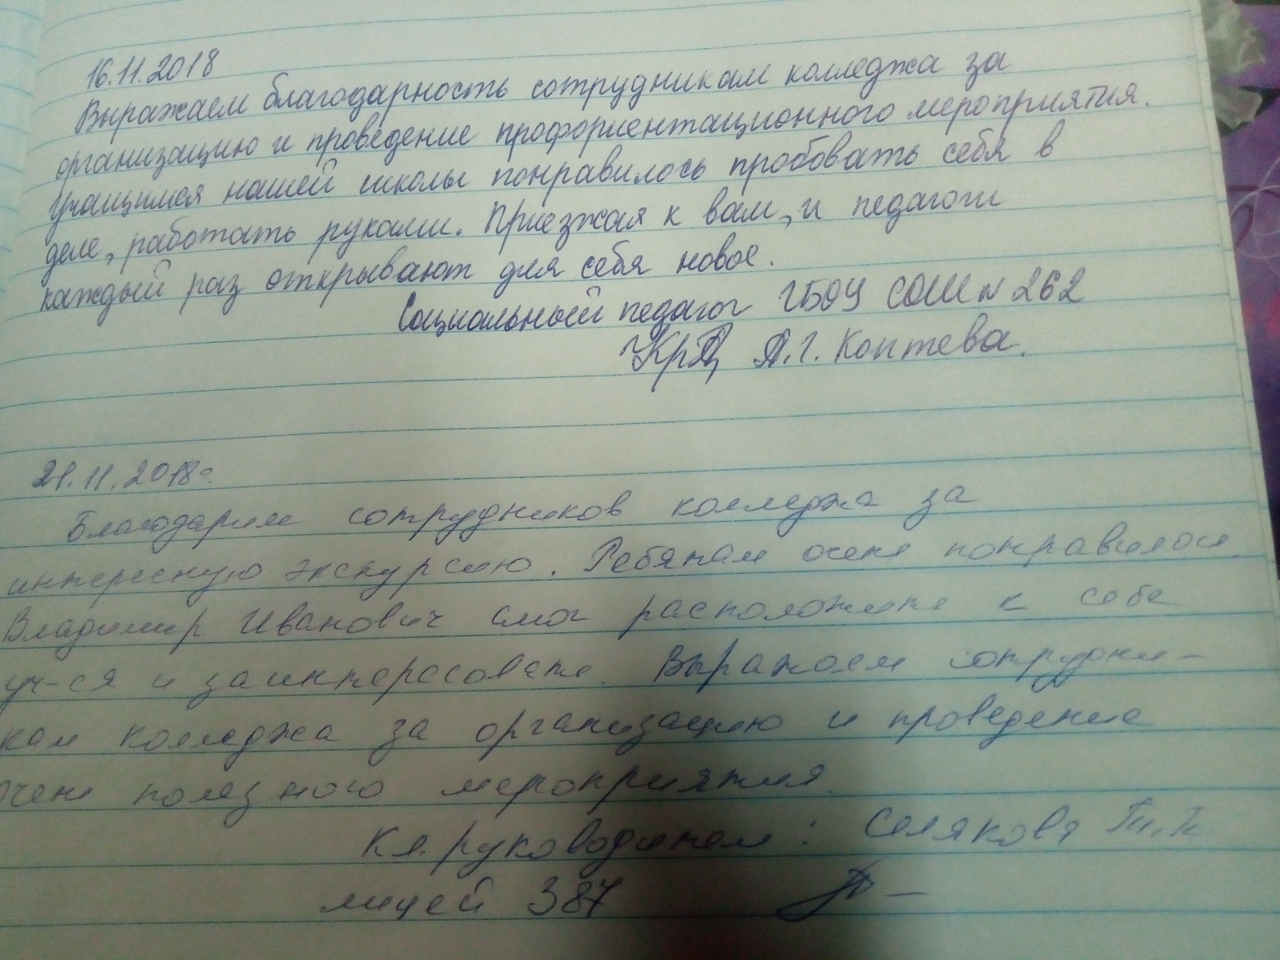 16.11.2018
Выражаем благодарность сотрудникам колледжа за
организацию и проведение профориентационного мероприятия.
Учащимся нашей школы понравилось пробовать себя в
деле, работать руками. Приезжая к вам, и педагоги
каждый раз открывают для себя новое.
Социальный педагог ГБОУ СОШ N 262
А.Г. Коптева.
21.11.2018г.
Благодарим сотрудников колледжа за
интересную экскурсию. Ребятам очень понравилось.
Владимир Иванович смог расположить к себе
уч-ся и заинтересовать. Выражаем сотрудни-
кам колледжа за организацию и проведение
очень полезного мероприятия.
Кл. руководитель: Селякова
лицей 387